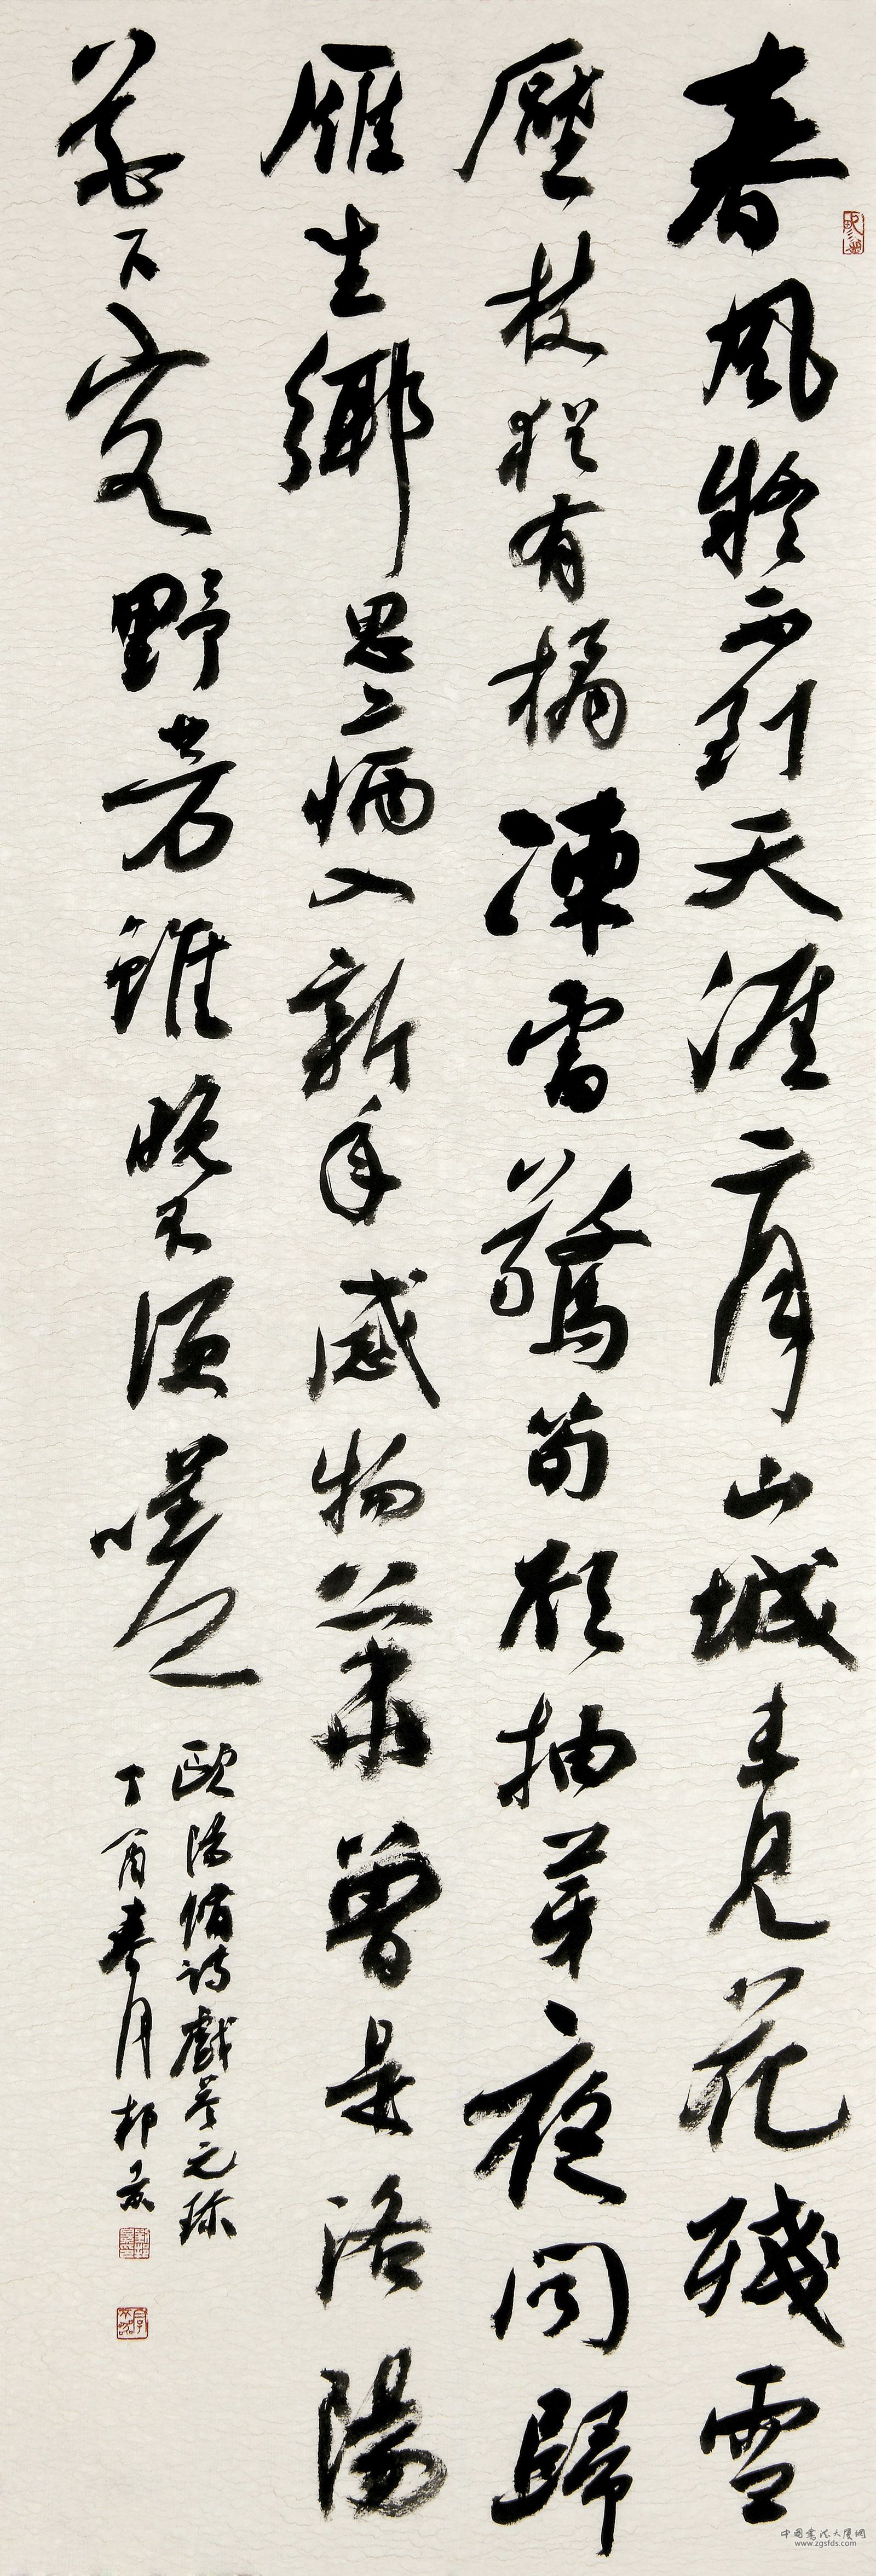 春風疑不到天涯二月山城未見花殘雪
壓枝猶有橘凍雷驚筍欲抽芽夜聞歸
雁生鄉思病入新年感物華曾是洛陽
花下客野芳雖晚不須嗟
歐陽脩詩戲答元珍
丁酉春月
中国書法大廈網
www.zgsfds.com